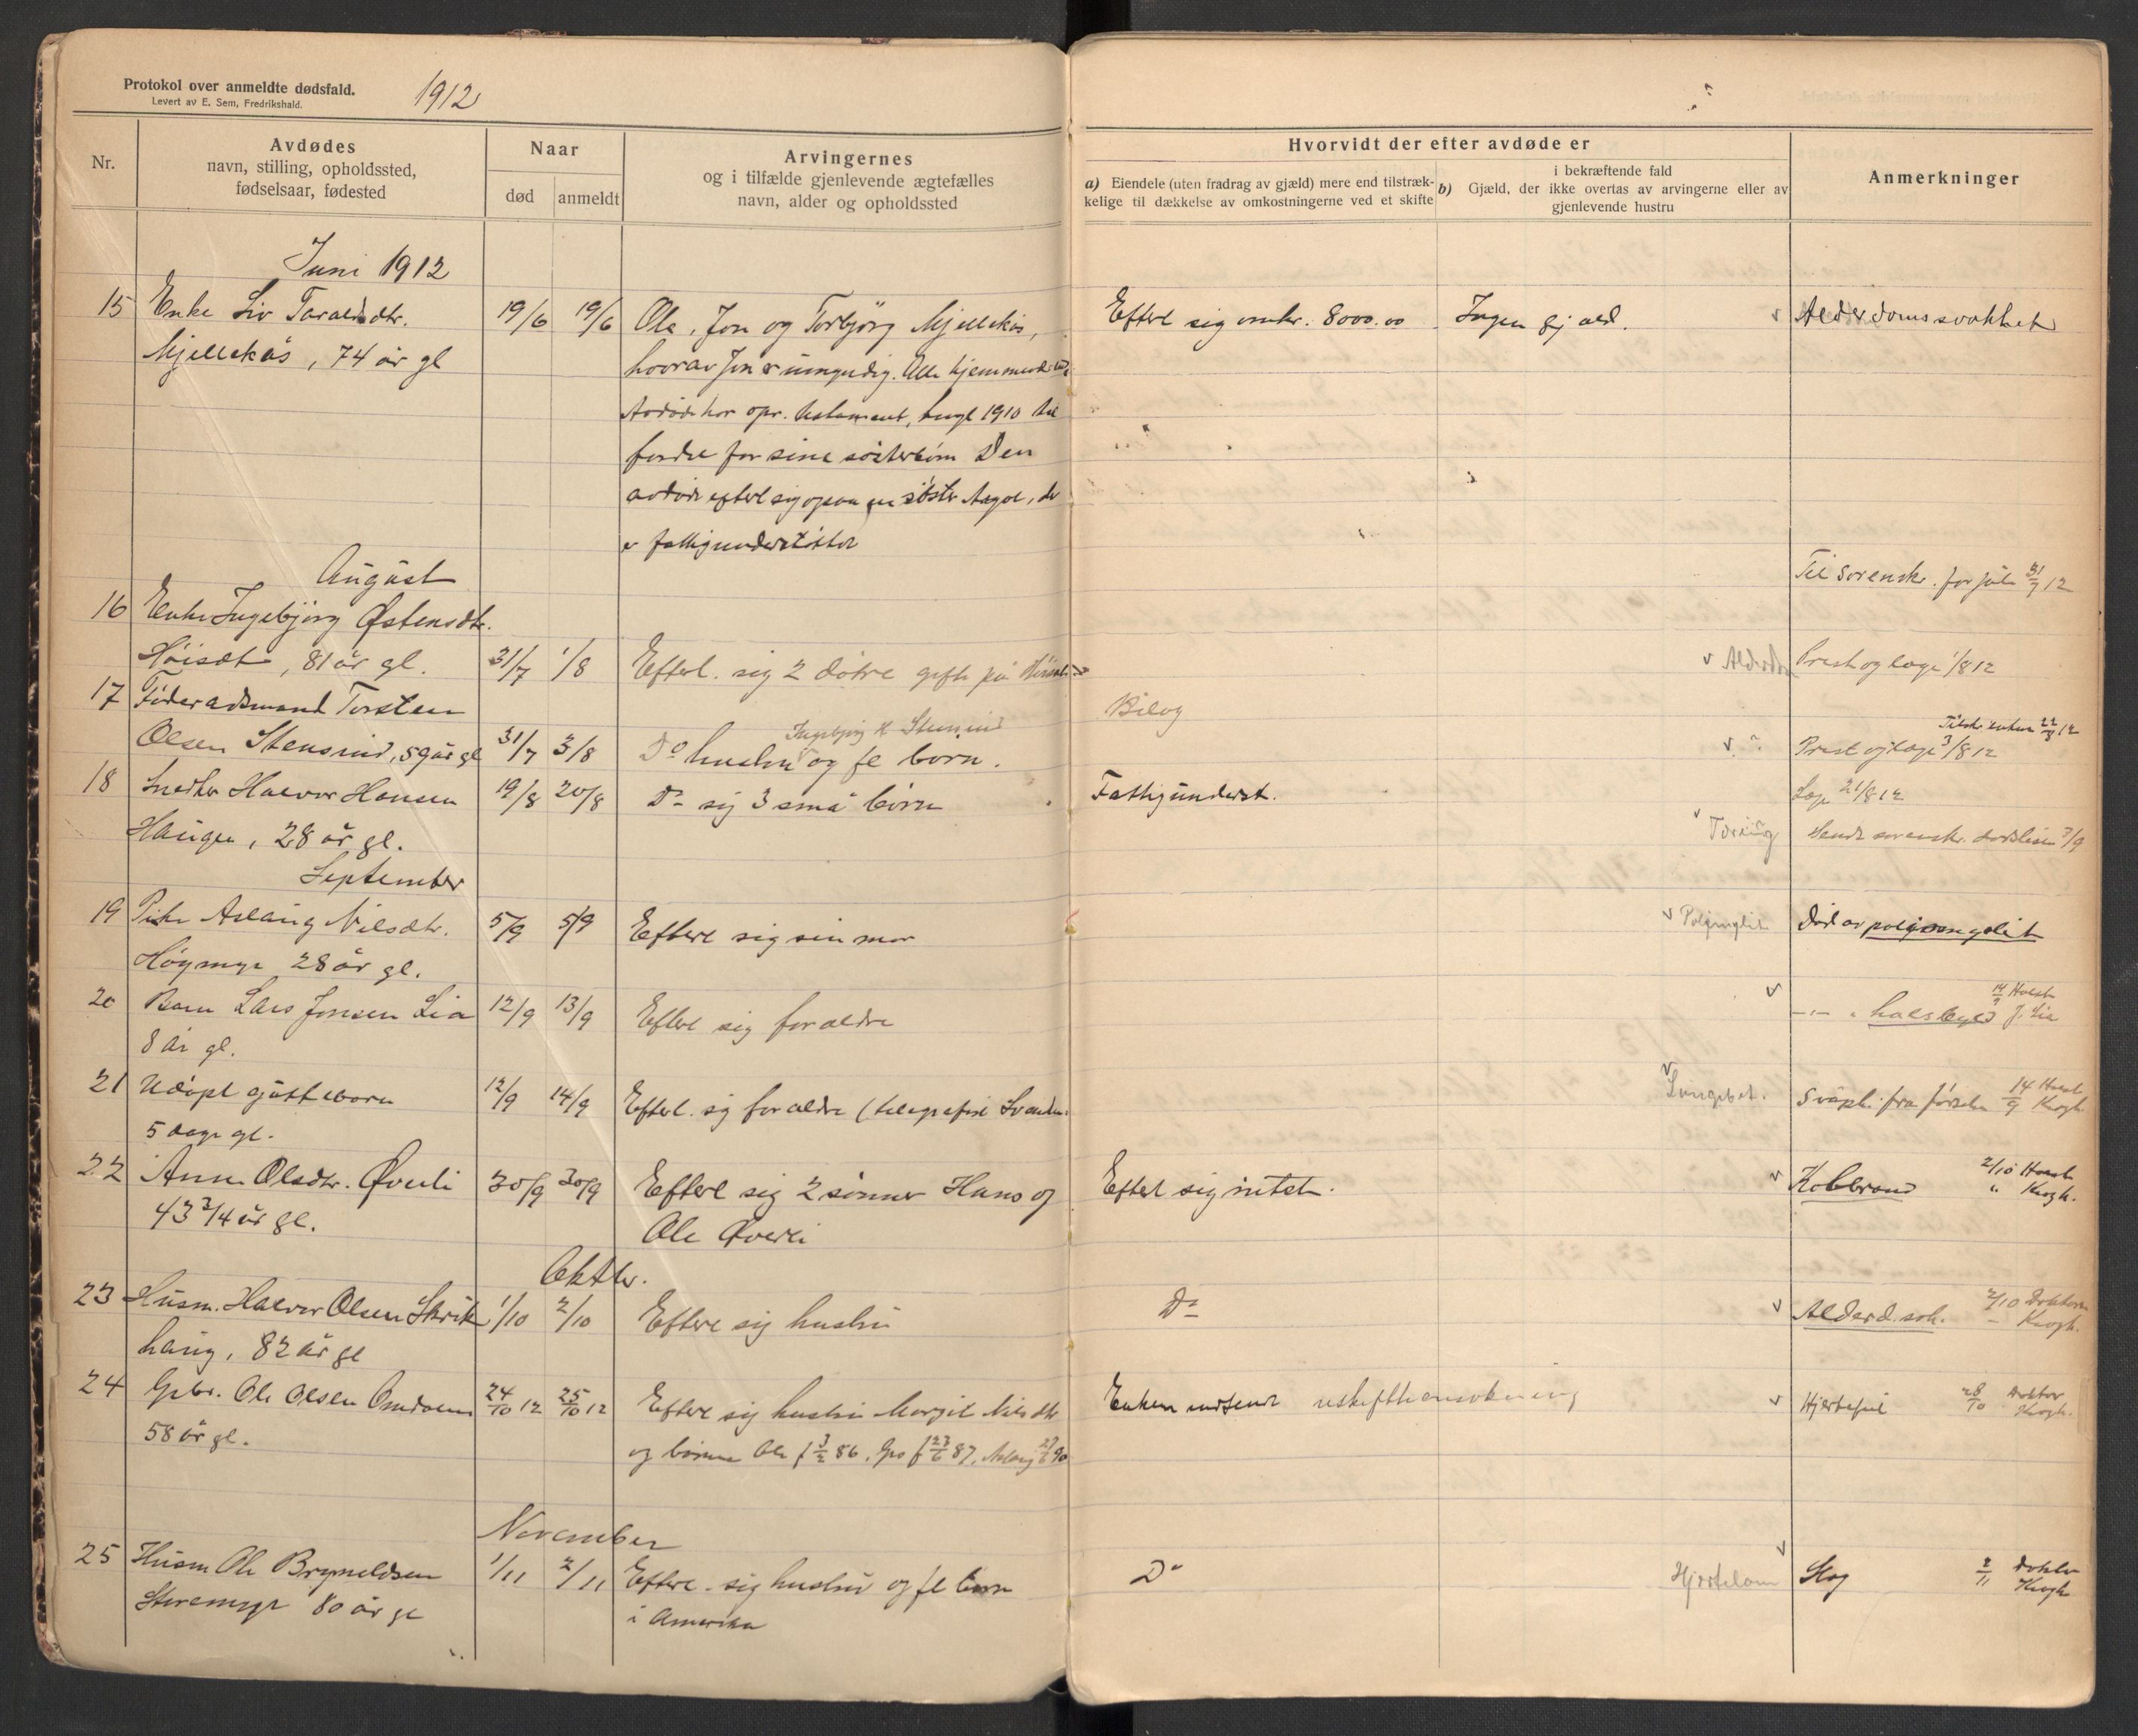 Protokol over anmeldte dødsfald.
Levert av E. Sem, Fredrikshald.
1912
Nr.
Avdødes
navn, stilling, opholdssted,
fødselsaar, fødested
Naar
død
anmeldt
Arvingernes
og i tilfælde gjenlevende ægtefælles
navn, alder og opholdssted
Hvorvidt der efter avdøde er
a) Eiendele (uten fradrag av gjæld) mere end tilstræk-
kelige til dækkelse av omkostningerne ved et skifte
i bekræftende fald
b) Gjæld, der ikke overtas av arvingerne eller av
gjenlevende hustru
Anmerkninger
Juni 1912
15 Enke Liv Taraldsdtr. 19/6 19/6 Ole, Jon og Torbjörg Mjellekås, Efterl sig omkr. 8000.00 Ingen gjæld. Alderdomssvakhet
Mjellekås, 74 år gl
hvorav Jon er umyndig. Alle hjemmeh
Avdøde har opr. testament, tingl 1910 til
fordel for sine søsterbørn Den
avdøde efterl sig ogsaa en søster Aagot, der
er fattigunderstøttet
August
Til sorenskr. for juli 31/7 12
16 Enke Ingebjörg Østensdtr.
Höisæt, 81 år gl. 31/7 1/8 Efterl. sig 2 døtre gift på Alderdom Prest og læge 1/8 12
17 Föderadsmand Torsten Bilag
Ingebjörg Stensrud
Olsen Stensrud, 59 år gl 31/7 3/8 Do hustru og fl börn. Prest og læge 3/8 12
22/8 12
18 Halvor Hansen 19/8 20/8 Do sig 3 små börn Fattigunderst. Læge 21/8 12
Haugen, 28 år gl. Tæring Sendt sorenskr. dødslisen 3/9
September
19 Pike Aslaug Nilsdtr. 5/9 5/9 Efterl sig sin mor Död av
Höymyr 28 år gl.
20 Barn Lars Jonsen Lia 12/9 13/9 Efterl sig forældre -"- " halsbyld 14/9 J. Lia
8 år gl.
21 Udöpt guttebarn 12/9 14/9 Efterl. sig forældre (telegrafist Lungebet. Svakel. fra førselen 14/9 Krogh.
5 dage gl.
22 Anne Olsdtr. Øverli 30/9 30/9 Efterl sig 2 sönner Hans og Efterl sig intet. Koldbrand 2/10
43 3/4 år gl. Ole Øverli " Krogh.
Oktbr.
23 Husm. Halvor Olsen Skrik 1/10 2/10 Efterl sig hustru Do Alderd. svh. 2/10 Doktoren
haug, 82 år gl – Krogh.
24 Gbr. Ole Olsen Omdalen 24/10 12 25/10 12 Efterl sig hustru Margit Nilsdtr Enken indsendt uskifteansökning Hjertefeil 28/10 Doktor
58 år gl. og börnene Ole f 3/2 86. Gro f 23/6 87. Aslaug 90 Krogh.
November
25 Husm Ole Bryneldsen 1/11 2/11 Efterl. sig hustru og fl börn Do Slag 2/11 Doktor
Storemyr 80 år gl i Amerika Krogh